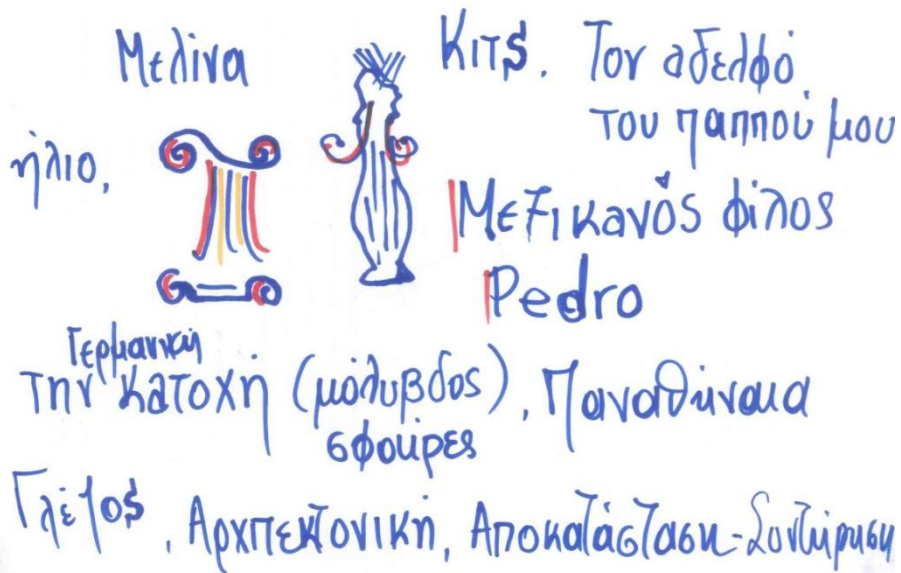 Μελίνα
Κιτς. Τον αδελφό
του παππού μου
ήλιο,
Μεξικανός φίλος
Pedro
Γερμανική
την κατοχή (μόλυβδος), Παναθήναια
σφαίρες
Γλέζος, Αρχιτεκτονική, Αποκατάσταση-Συντήρηση